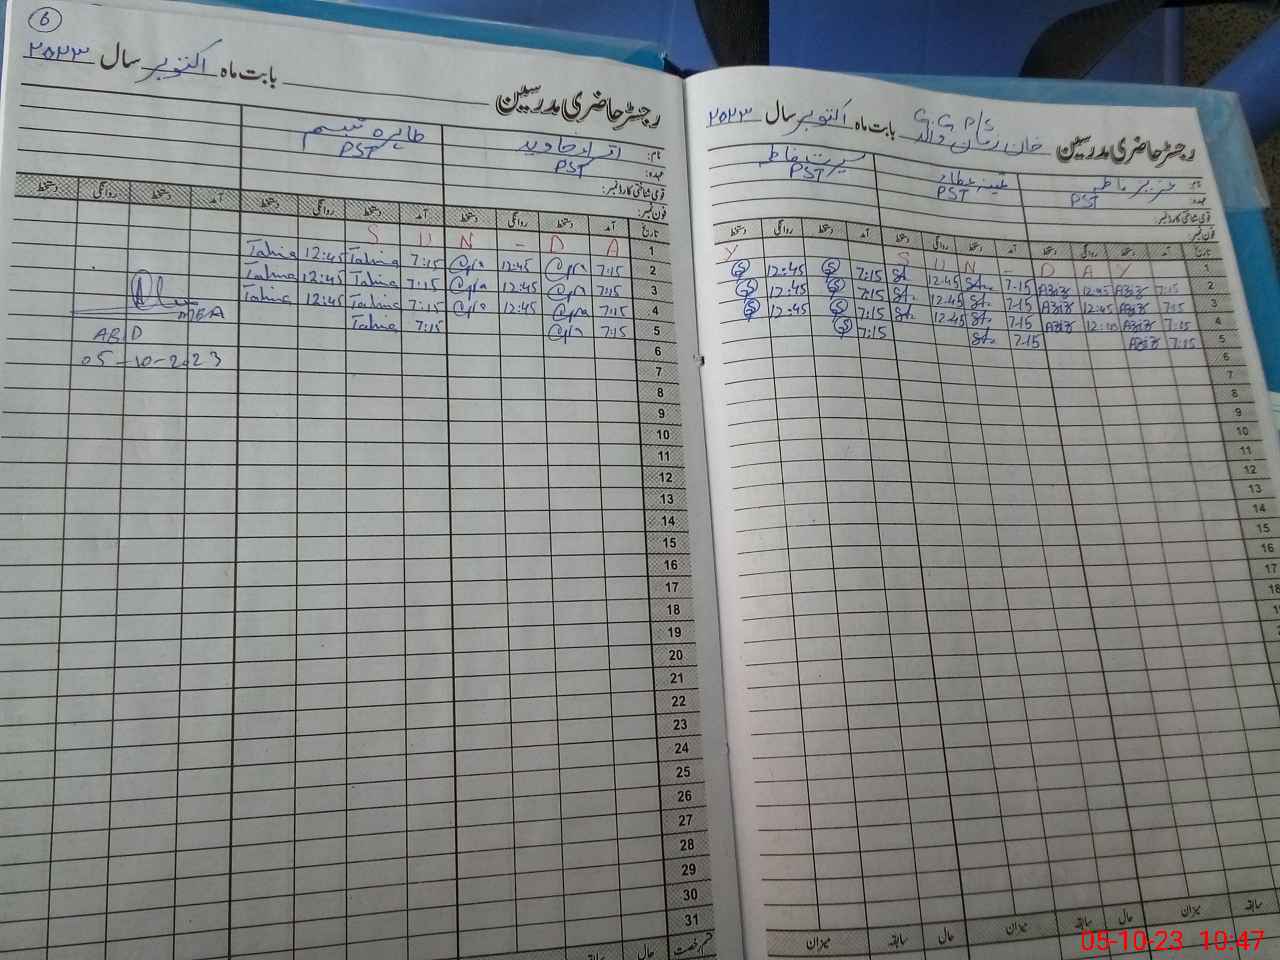 رجسٹر حاضری مدرسین خان زمان والہ بابت ماہ اکتوبر سال ۲۰۲۳
G.G.P/S
نام:
PST PST سیرت فاطمہ PST
عہدہ:
قومی شناختی کارڈ نمبر:
فون نمبر:
تاریخ آمد دستخط روانگی دستخط آمد دستخط روانگی دستخط آمد دستخط روانگی دستخط
1 S U N - D A Y
2 7:15 Aziz 12:45 Aziz 7:15 St. 12:45 St. 7:15 S 12:45 S
3 7:15 Aziz 12:45 Aziz 7:15 St. 12:45 St. 7:15 S 12:45 S
4 7:15 Aziz 12:10 Aziz 7:15 St. 12:45 St. 7:15 S 12:45 S
5 7:15 Aziz 7:15 St. 7:15 S
6
7
8
9
10
11
12
13
14
15
16
17
18
میزان سابقہ حال میزان سابقہ حال میزان سابقہ
6
رجسٹر حاضری مدرسین بابت ماہ اکتوبر سال ۲۰۲۳
نام: اقراء جاوید طاہرہ تبسم
عہدہ: PST PST
قومی شناختی کارڈ نمبر:
فون نمبر:
تاریخ آمد دستخط روانگی دستخط آمد دستخط روانگی دستخط آمد دستخط روانگی دستخط
1 S U N - D A
2 7:15 12:45 7:15 Tahira 12:45 Tahira
3 7:15 12:45 7:15 Tahira 12:45 Tahira
4 7:15 12:45 7:15 Tahira 12:45 Tahira
5 7:15 7:15 Tahira
MEA
ABD
05-10-2023
6
7
8
9
10
11
12
13
14
15
16
17
18
19
20
21
22
23
24
25
26
27
28
29
30
31
قسم رخصت حال سابقہ
05-10-23 10:47